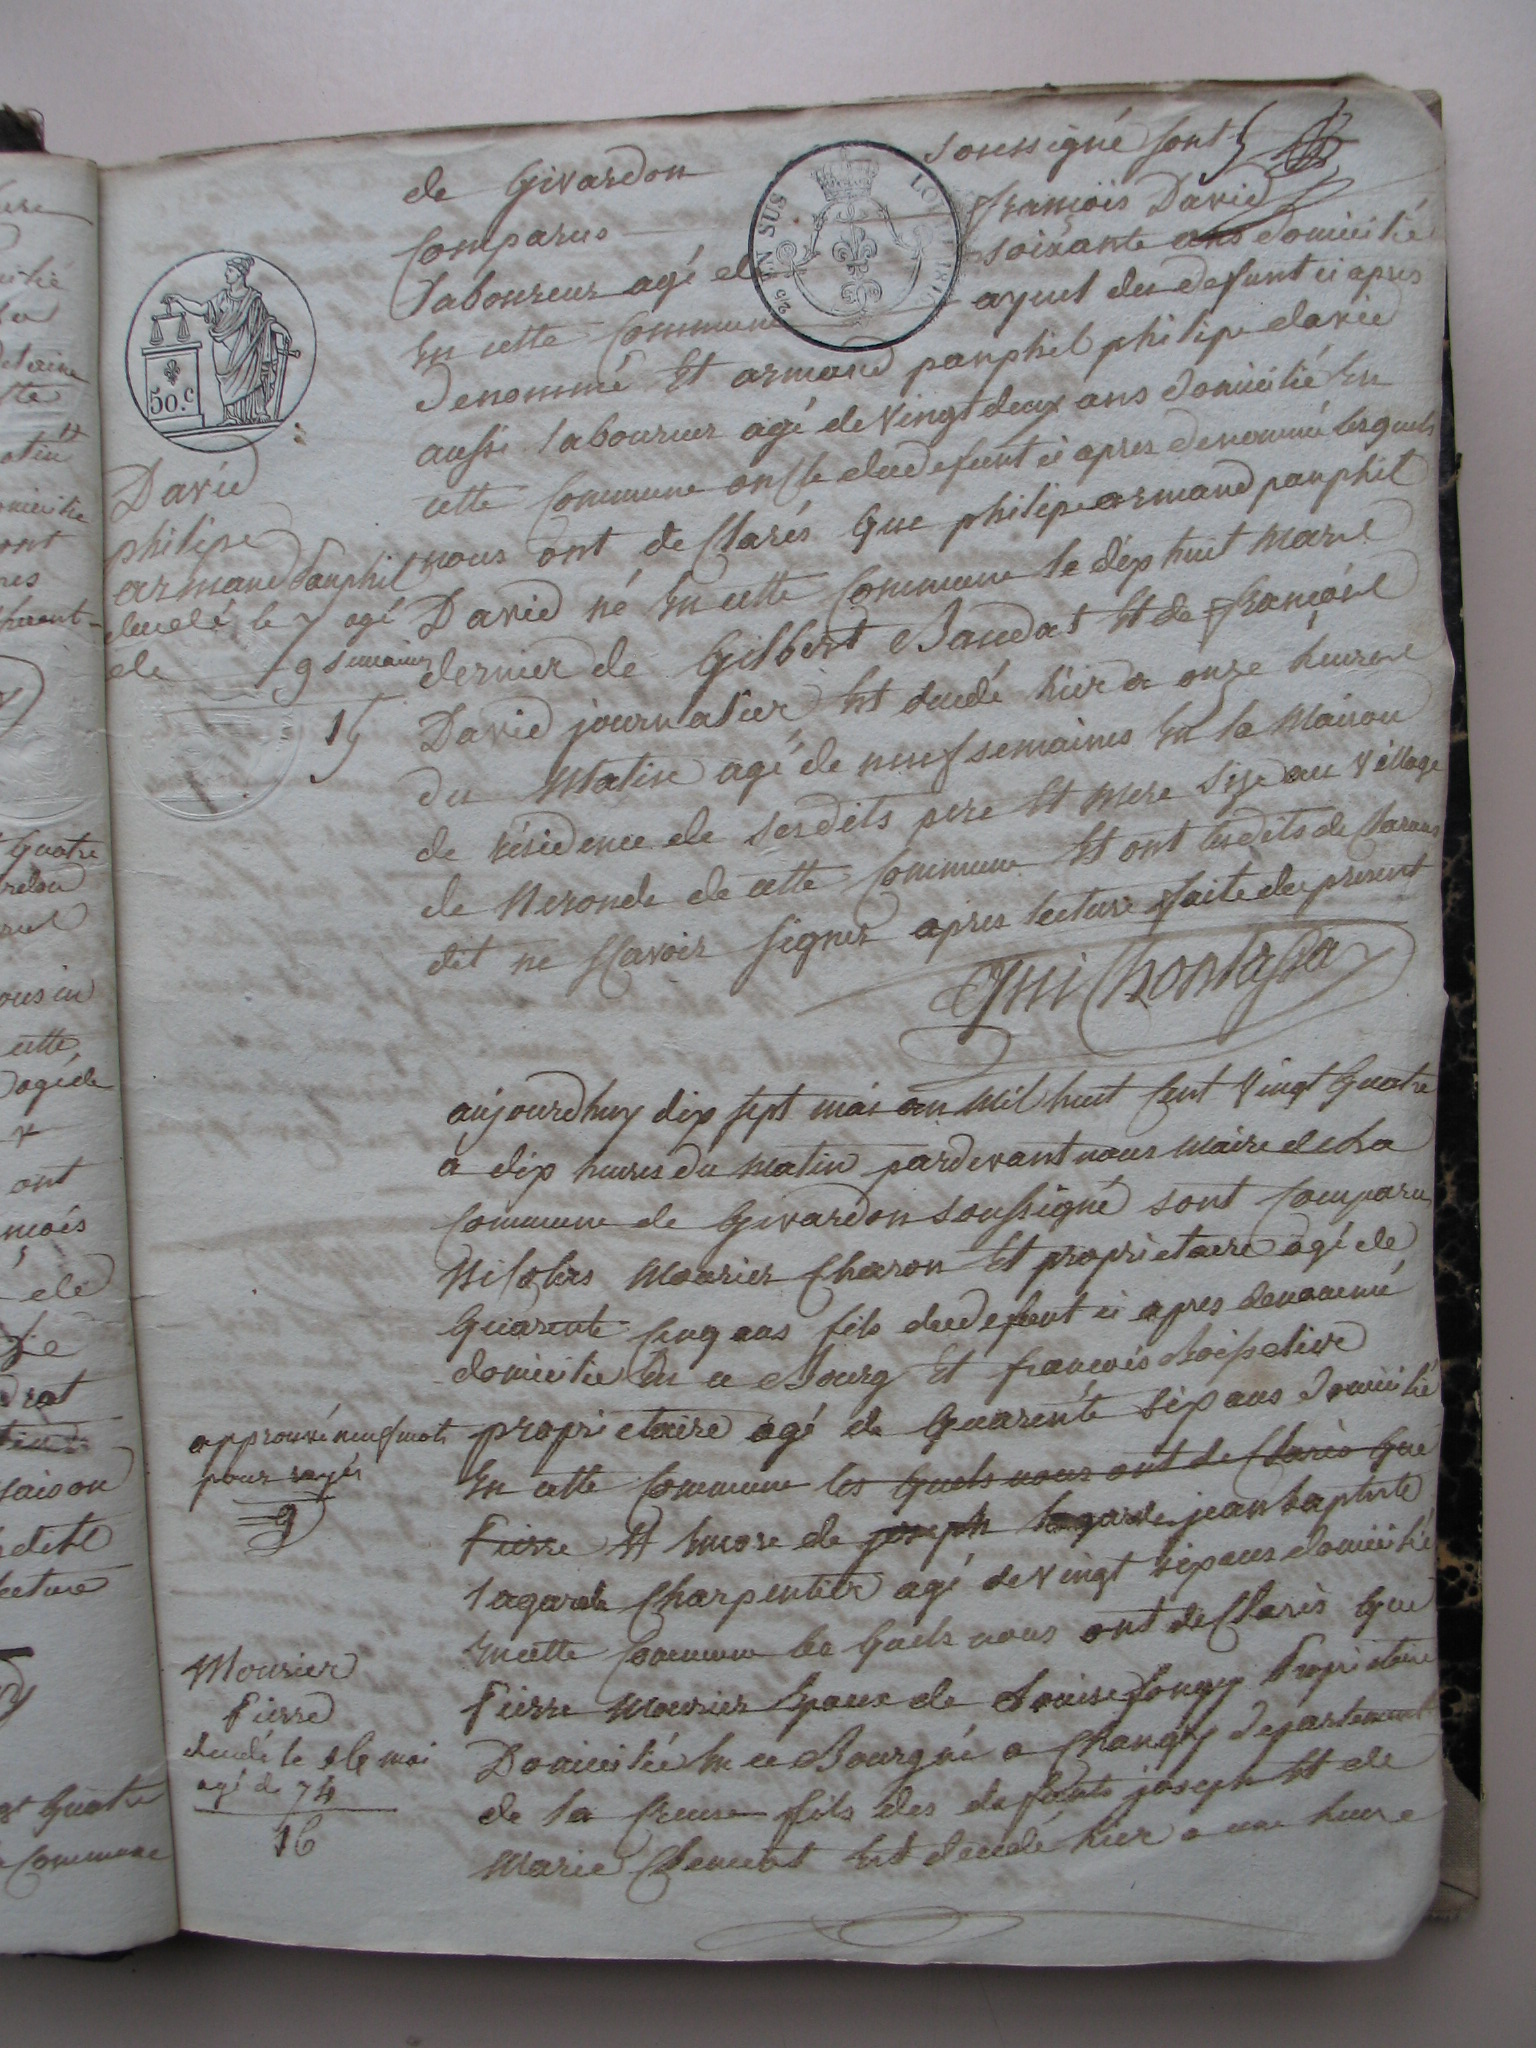 de Givardon soussigné sont 5
Comparus françois David
laboureur agé de soixante ans domicilié
En cette Commune ayeul du defunt ci apres
denommé Et armand panphil philipe david
aussi laboureur agé de vingt deux ans domicilié En
cette Commune oncle dudefunt ci apres denommé lesquels
nous ont declarés que philipe armand panphil
David né En cette Commune le dix huit mars
dernier de Gilbert Baudat Et de françoise
David journalier Est decedé hier a onze heures
du Matin agé de neuf semaines En la Maison
de résidence de sesdits pere Et mere size au village
de Neronde de cette Commune Et ont lesdits declarans
dit ne scavoir signer apres lecture faite du present
25 EN SUS
LOI
1816
50.C
David
philipe
armand panphil
decedé le 7 agé
de 9 semaines
15
aujourdhuy dix sept mai an mil huit Cent vingt Quatre
a dix heures du matin pardevant nous maire de La
Commune de Givardon soussigné sont Comparu
Nicolas Mourier Charon Et proprietaire agé de
Quarente Cinq ans fils dudefunt ci apres denommé
domicilié En ce Bourg Et francois
proprietaire agé de Quarente six ans domicilié
En cette Commune les quels nous ont declarés Que
Pierre Et Encore de joseph lagarde jean baptiste
lagarde Charpentier agé de vingt six ans domicilié
En cette Commune les quels nous ont declarés Que
Pierre Mourier Epoux de Louise Proprietaire
Domicilié En ce Bourg né a Changy departement
de la Creuse fils des defunts joseph Et de
Marie Clement Est decedé hier a une heure
approuvé neuf mots
pour rayés
9
Mourier
Pierre
decedé le 16 mai
agé de 74
16